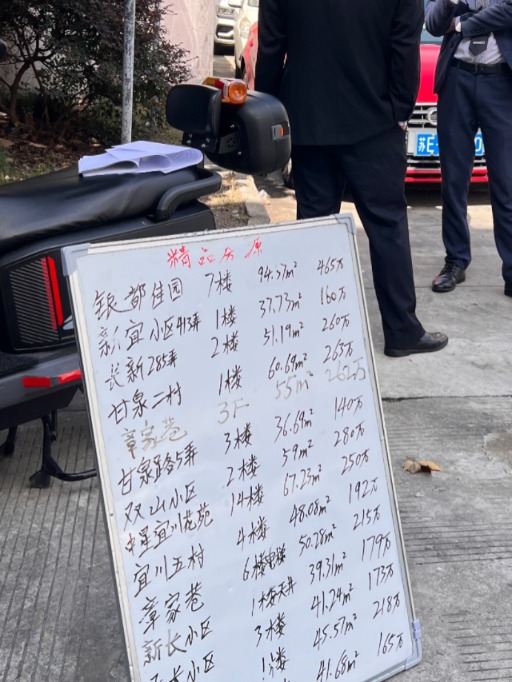 精品房源
银都佳园 7楼 94.37m² 465万
彰宜小区413弄 1楼 37.73m² 160万
长新285弄 2楼 51.19m² 260万
甘泉二村 1楼 60.69m² 263万
章家巷 3F 55m² 262万
甘泉路5弄 3楼 36.69m² 140万
双山小区 2楼 59m² 280万
中星宜川花苑 14楼 67.23m² 250万
宜川五村 4楼 48.08m² 192万
章家巷 6楼电梯 50.78m² 215万
新长小区 1楼天井 39.31m² 179万
长小区 3楼 41.24m² 173万
1楼 45.57m² 218万
41.68m² 165万
苏E